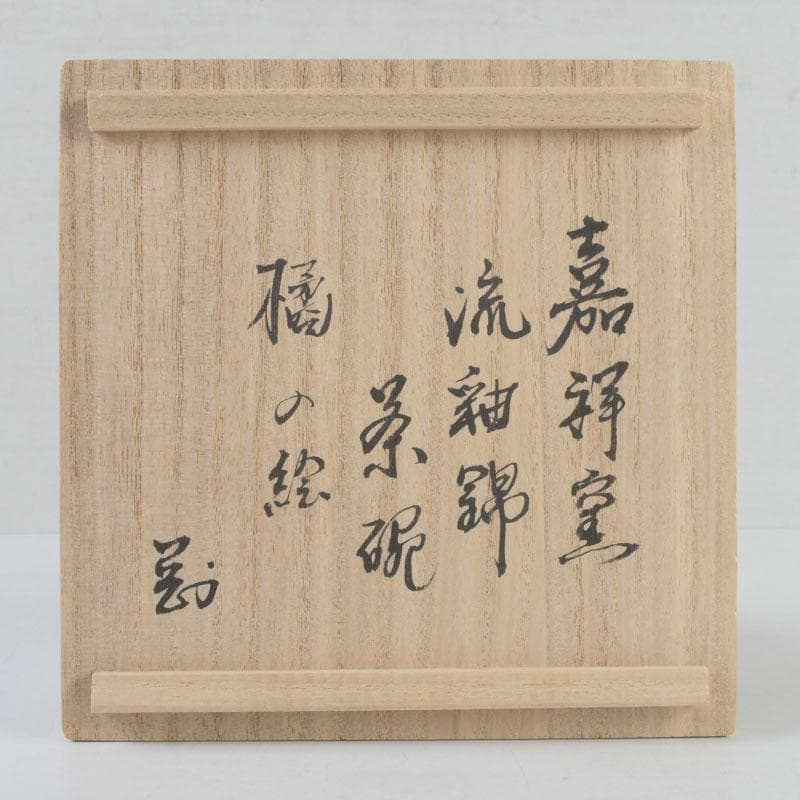 嘉祥窯
流釉錦
茶碗
橘の絵